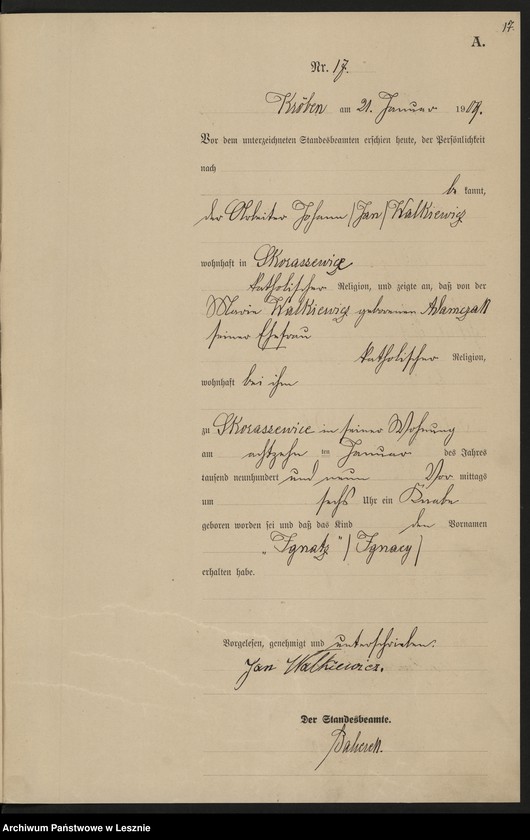 17.
A.
Nr. 17.
Kröben am 21. Januar 1909.
Vor dem unterzeichneten Standesbeamten erschien heute, der Persönlichkeit
nach
be kannt,
der Arbeiter Johann (Jan) Walkiewicz
wohnhaft in Skoraszewice
katholischer Religion, und zeigte an, daß von der
Marie Walkiewicz geborenen Adamczak
seiner Ehefrau
katholischer Religion,
wohnhaft bei ihm
zu Skoraszewice in seiner Wohnung
am achtzehn ten Januar des Jahres
tausend neunhundert und neun Vor mittags
um sechs Uhr ein Knabe
geboren worden sei und daß das Kind den Vornamen
„Ignatz" (Ignacy)
erhalten habe.
Vorgelesen, genehmigt und unterschrieben.
Jan Walkiewicz.
Der Standesbeamte.
Archiwum Państwowe w Lesznie